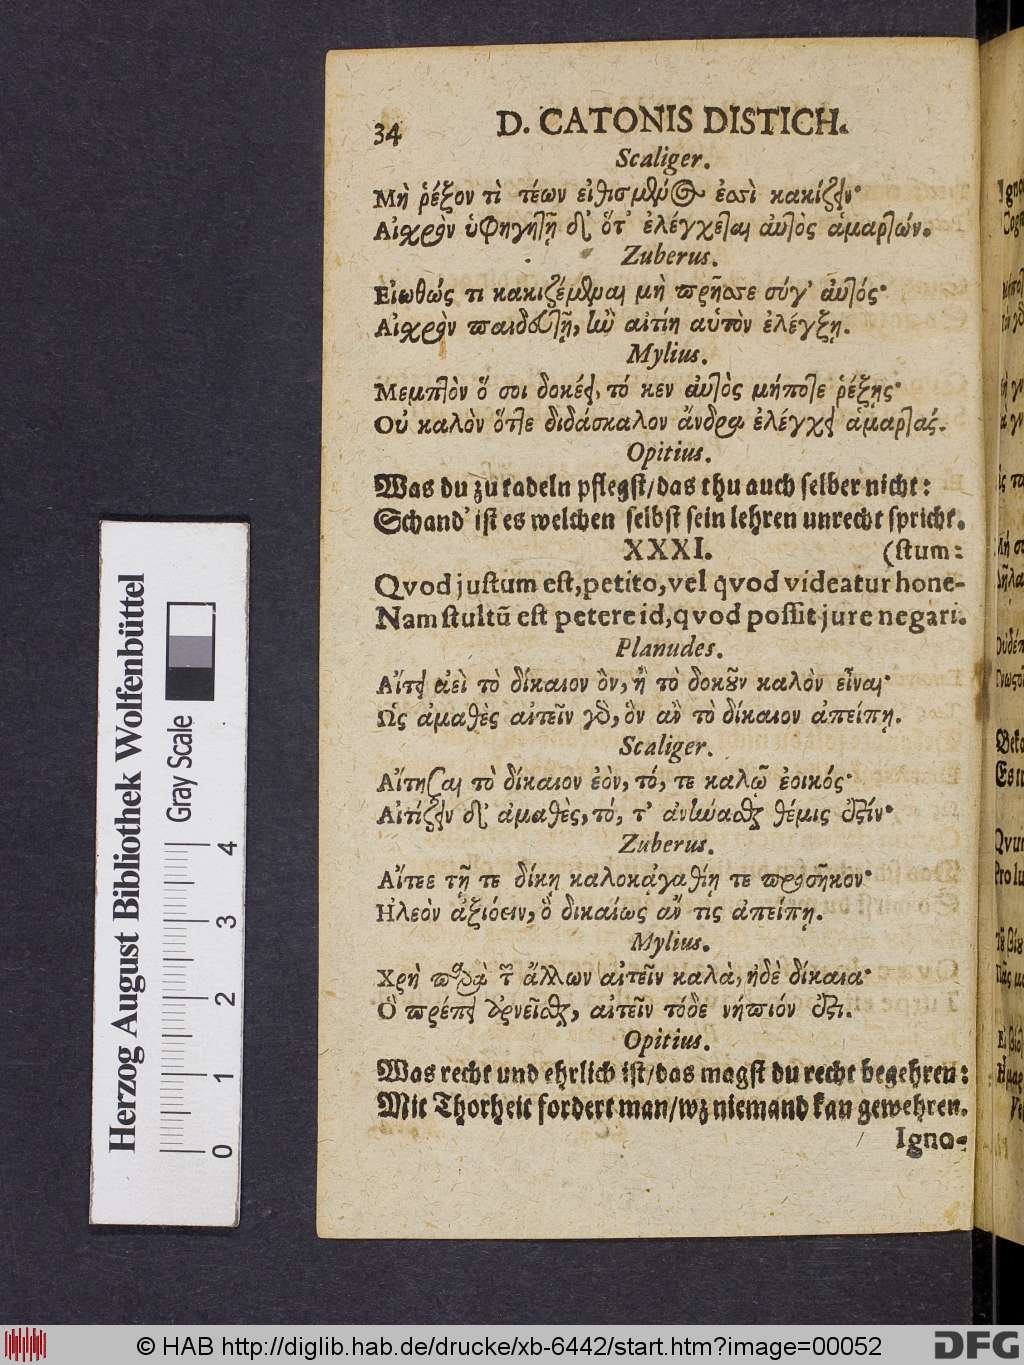 34 D. CATONIS DISTICH.
Scaliger.
Μὴ ῥέξον τὶ τέων εἰθισμένος ἐσσὶ κακίζειν·
Αἰχρὸν ὑφηγητῇ δ' ὅτ' ἐλέγχεται αὐτὸς ἁμαρτών.
Zuberus.
Εἰωθώς τι κακιζέμεναι μὴ πρῆσσε σύγ' αὐτός·
Αἰχρὸν παιδευτῇ, ἢν αἰτίη αὐτὸν ἐλέγξῃ.
Mylius.
Μεμπτὸν ὅ σοι δοκέει, τό κεν αὐτὸς μήποτε ῥέξῃς·
Οὐ καλὸν ὅττε διδάσκαλον ἄνδρα ἐλέγχει ἁμαρτάς.
Opitius.
Was du zu tadeln pflegst/das thu auch selber nicht:
Schand' ist es welchen selbst sein lehren unrecht spricht.
XXXI. (stum:
Qvod justum est, petito, vel qvod videatur hone-
Nam stultũ est petere id, qvod possit jure negari.
Planudes.
Αἴτει ἀεὶ τὸ δίκαιον ὂν, ἢ τὸ δοκοῦν καλὸν εἶναι·
Ὡς ἀμαθὲς αἰτεῖν γὰρ, ὃν ἂν τὸ δίκαιον ἀπείπῃ.
Scaliger.
Αἴτησαι τὸ δίκαιον ἐὸν, τό, τε καλῷ ἐοικός·
Αἰτίζειν δ' ἀμαθὲς, τό, τ' ἀνήνασθαι θέμις ἐστίν·
Zuberus.
Αἴτεε τῇ τε δίκῃ καλοκἀγαθίῃ τε προσῆκον·
Ηλεὸν ἀξιόειν, ὃ δικαίως ἄν τις ἀπείπῃ.
Mylius.
Χρὴ παρὰ τῶν ἄλλων αἰτεῖν καλὰ, ἠδὲ δίκαια·
Ὃ πρέπει ἀρνεῖσθαι, αἰτεῖν τόδε νήπιόν ἐστι.
Opitius.
Was recht und ehrlich ist/das magst du recht begehren:
Mit Thorheit fordert man/wz niemand kan gewehren.
Igno-
Herzog August Bibliothek Wolfenbüttel
Gray Scale
0 1 2 3 4
© HAB http://diglib.hab.de/drucke/xb-6442/start.htm?image=00052
DFG